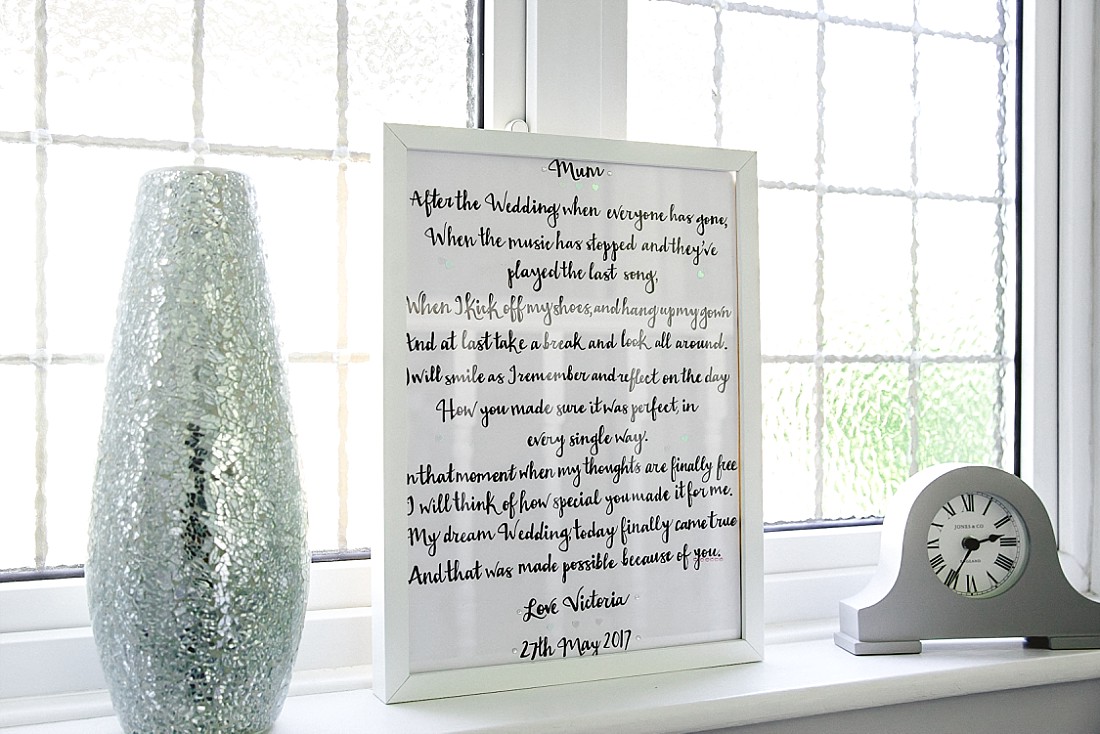 Mum
After the Wedding, when everyone has gone,
When the music has stopped and they've
played the last song,
When I kick off my shoes, and hang up my gown
And at last take a break and look all around.
I will smile as I remember and reflect on the day
How you made sure it was perfect, in
every single way.
n that moment when my thoughts are finally free
I will think of how special you made it for me.
My dream Wedding, today finally came true
And that was made possible because of you.
Love Victoria
27th May 2017
XII I II III IIII V VI VII VIII IX X XI
JONES & CO
ENGLAND